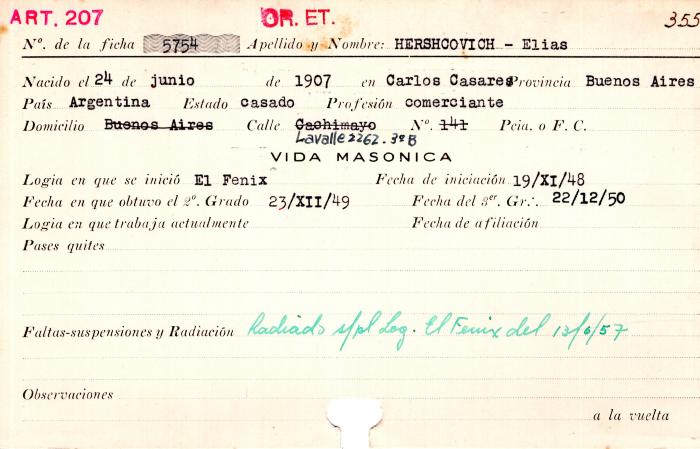 ART. 207 OR. ET. 355
Nº. de la ficha 5754 Apellido y Nombre: HERSHCOVICH - Elias
Nacido el 24 de junio de 1907 en Carlos Casares Provincia Buenos Aires
País Argentina Estado casado Profesión comerciante
Domicilio Buenos Aires Calle Cachimayo Nº. 141 Pcia. o F. C.
Lavalle 2262. 3º B
VIDA MASONICA
Logia en que se inició El Fenix Fecha de iniciación 19/XI/48
Fecha en que obtuvo el 2º. Grado 23/XII/49 Fecha del 3er. Gr∴. 22/12/50
Logia en que trabaja actualmente Fecha de afiliación
Pases quites
Faltas-suspensiones y Radiación Radiado s/pl Log. El Fenix del 13/6/57
Observaciones
a la vuelta